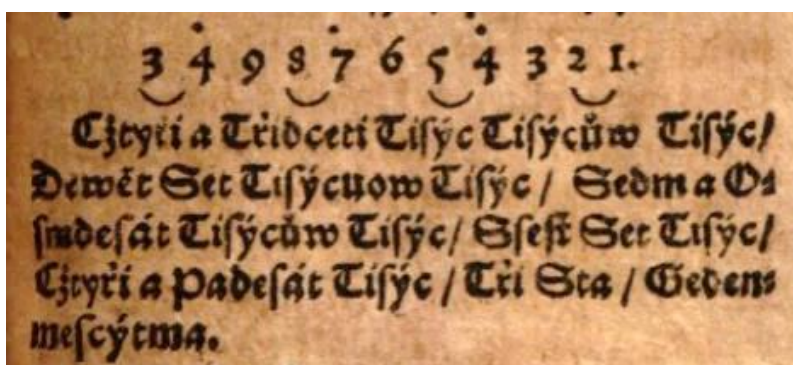 3 4 9 8 7 6 5 4 3 2 1.
Cžtyři a Třidceti Tiſýc Tiſýcůw Tiſýc/
Dewět Set Tiſýcuow Tiſýc / Sedm a O⸗
ſmdeſát Tiſýcůw Tiſýc/ Sſeſt Set Tiſýc/
Cžtyři a Padeſát Tiſýc / Tři Sta / Geden⸗
meſcýtma.